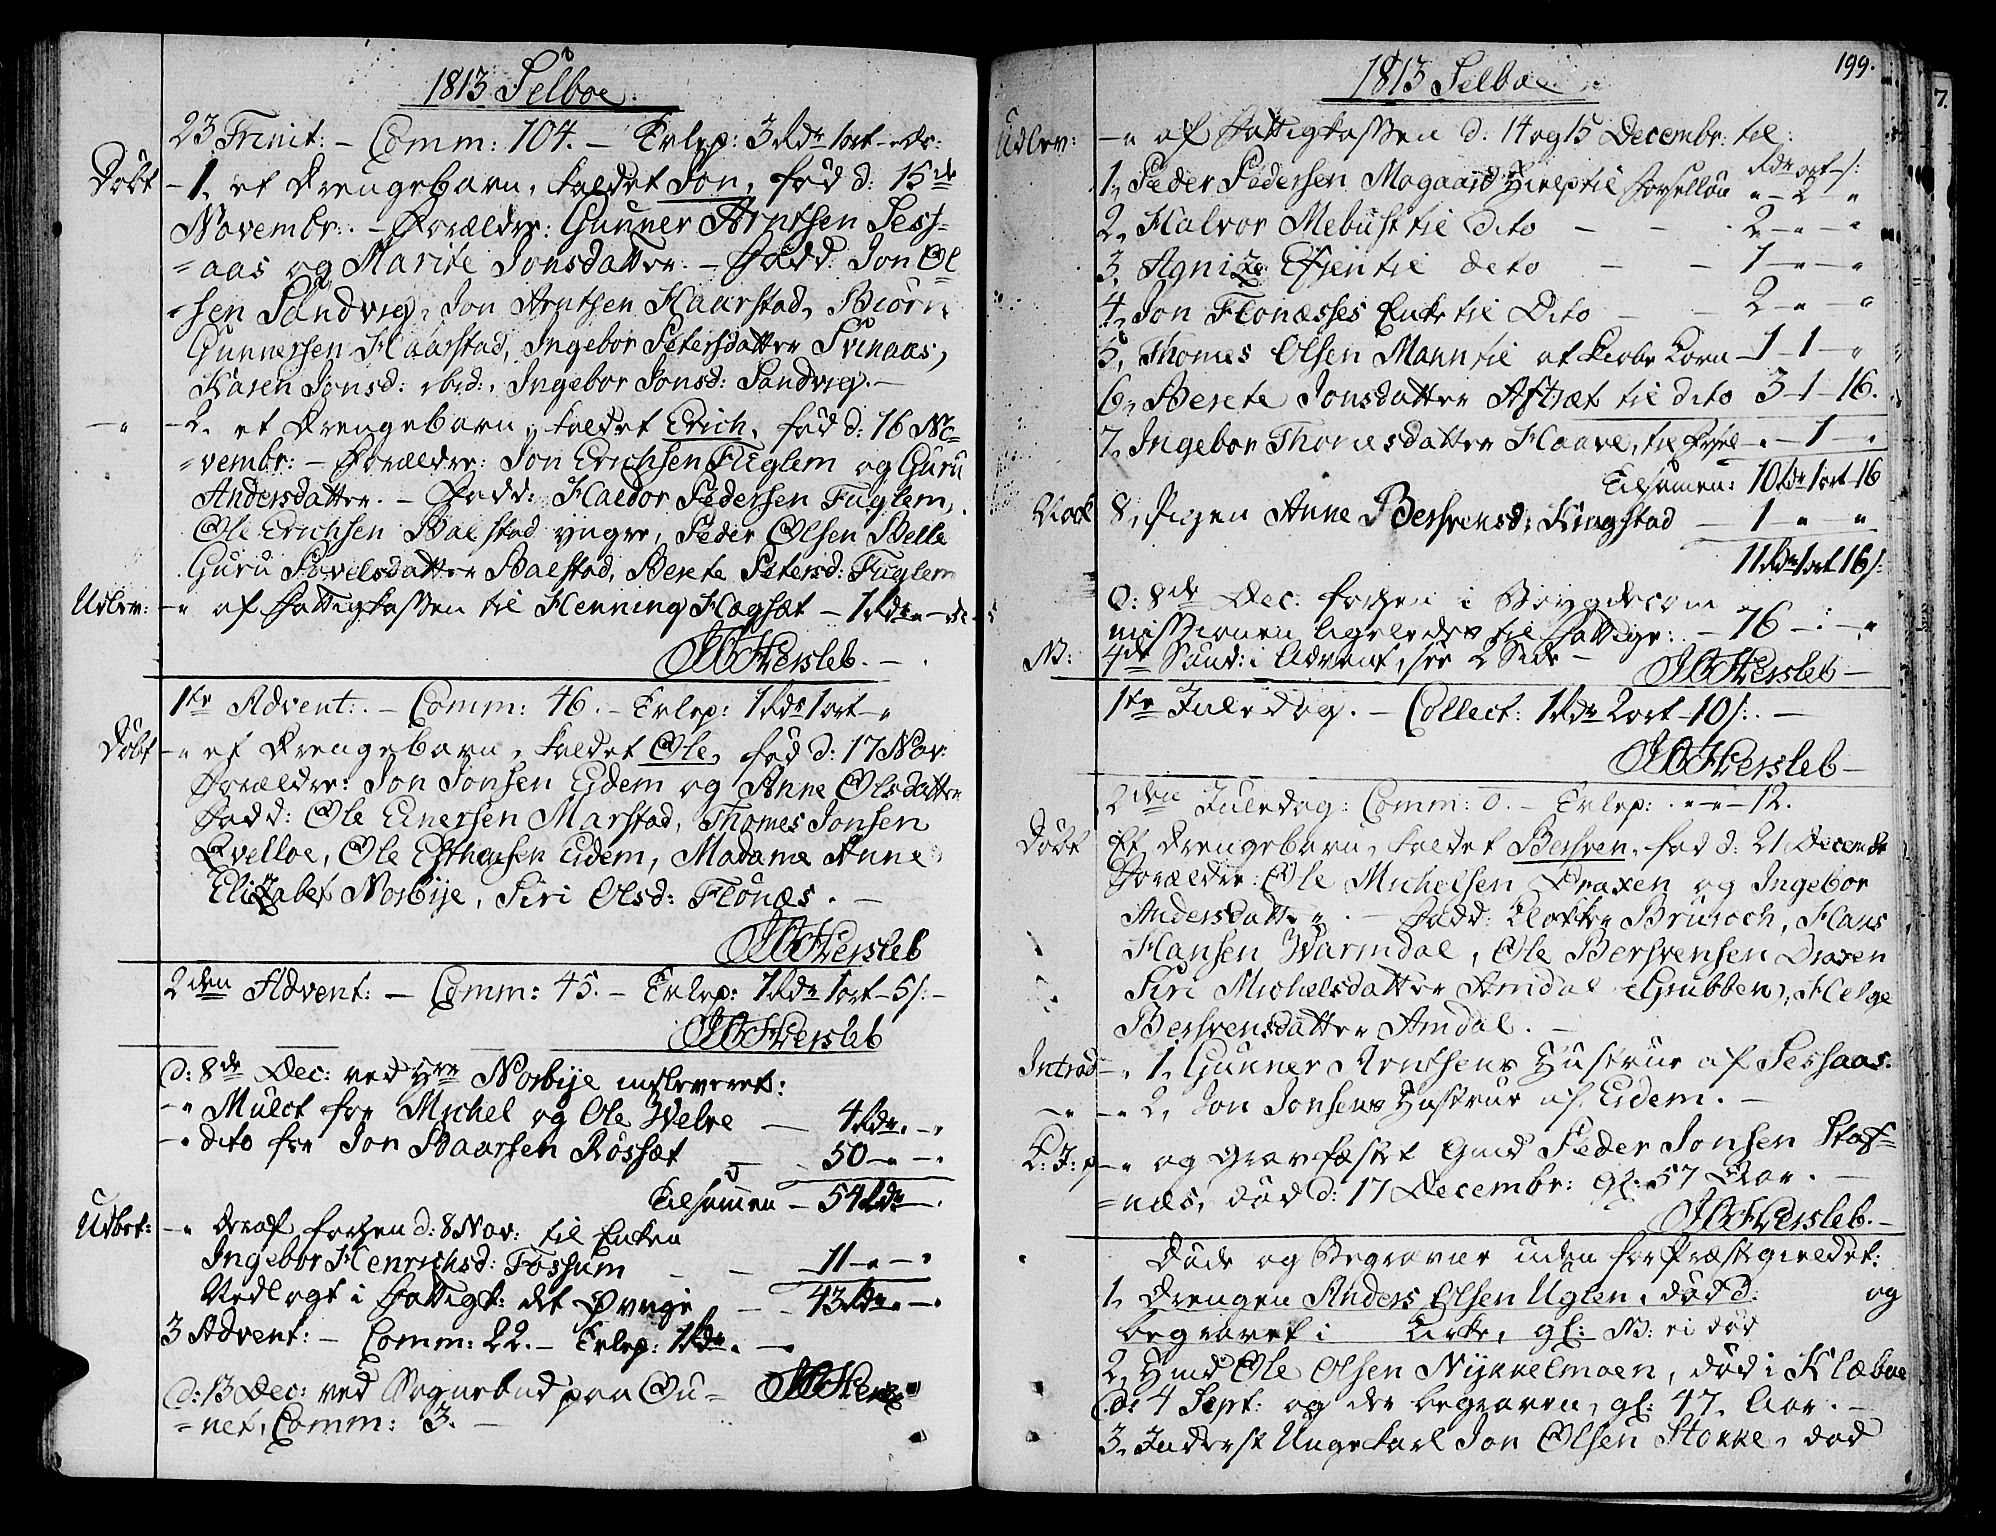 1813 Selboe.
23 Trinit: – Comm: 104. – Erlep: 3 Rdr 1 ort
Døbt – 1, et Drengebarn, kaldet Jon, fød d: 15de
Novembr: – Forældre: Gunner Arntsen Sess=
=aas og Marite Jonsdatter. – Fadd: Jon Ol=
=sen Sandvig, Jon Arntsen Haarstad, Biørn
Gunnersen Haarstad, Ingebor Petersdatter Svinaas,
Karen Jonsd: ibid:, Ingebor Jonsd: Sandvig. –
– " – 2, et Drengebarn, kaldet Erich, fød d: 16 No=
=vembr: – Forældre: Jon Erichsen Fuglem og Guru
Andersdatter. – Fadd: Haldor Pedersen Fuglem,
Ole Erichsen Balstad yngre, Peder Olsen Belle
Guru Povelsdatter Balstad, Berete Petersd: Fuglem
Udlev: – " af Fattigkassen til Henning Hagsæt – 1 Rdr
Hersleb. –
1te Advent: – Comm: 46. – Erlep: 1 Rdr 1 ort – "
Døbt – " et Drengebarn, kaldet Ole, fød d: 17 Nov:
Forældre: Jon Jonsen Eidem og Anne Olsdatter
Fadd: Ole Einersen Marstad, Thomes Jonsen
Qvelloe, Ole Esthensen Eidem, Madame Anne
Elizabet Norbye, Siri Olsd: Flønæs. –
Hersleb
2den Advent: – Comm: 45. – Erlep: 1 Rdr 1 ort – 5 /: –
Hersleb
d: 8de Dec: ved Hrr Norbye indleveret:
– " Mulct for Michel og Ole Welve – 4 Rdr. – "
– " dito for Jon Baarsen Røssæt – 50 – " – "
Tilsamen – 54 Rdr –
Udbet: – " deraf forhen d: 8 Nov: til Enken
Ingebor Henrichsd: Fossum – – 11 – " – "
Nedlagt i Fattigk: det Øvrige – 43 Rdr. – "
3 Advent: – Comm: 22. – Erlep: 1 Rdr. –
d: 13 Dec: ved Sognebud paa Ou= Hersleb
=net, Comm: 3. –
199.
1813 Selboe
Udlev: – " af Fattigkassen d: 14 og 15 Decembr: til:
Rdr ort /:
1, Peder Pedersen Mogaard Hielp til " – 2 – "
2, Halvor Mebust til dito – – 2 – " – "
3, Agnis Efjen til dito – – 1 – " – "
4, Jon Flonæsses Enke til Dito – – 2 – " – "
5, Thomes Olsen Mann til at kiøbe Korn – 1 – 1 – "
6, Berete Jonsdatter Aftræt til dito 3 – 1 – 16.
7, Ingebor Thomesdatter Haave, til – " – 1 – "
Tilsamen: 10 Rdr 1 ort 16
8, Pigen Anne Bersvensd: Kingstad – 1 " – "
11 Rdr 1 ort 16 /:
d: 8de Dec: forhen i Bøygdecom
missionen ligeledes til Fattige: – 76 – : – "
N: 4de Sønd: i Advent, see 2 Side – Hersleb –
1te Juledag. – Collect: 1 Rdr 2 ort – 10 /: –
Hersleb –
2den Juledag: Comm: 0. – Erlep: . " – " – 12.
Døbt Et Drengebarn, kaldet Bersven, fød d: 21 Decembr
Forældre: Ole Michelsen Draxen og Ingebor
Andersdatter. – Fadd: Klokker Bruroch, Hans
Hansen Warmdal, Ole Bersvensen Draxen
Siri Michelsdatter Amdal (Grubben), Helge
Bersvensdatter Amdal. –
Introd – " 1, Gunner Arntsens Hustrue af Sessaas.
– " – " 2, Jon Jonsens Hustrue af Eidem. –
K: J: p – " og Gravfæstet Gmd Peder Jonsen Staf=
=næs, død d: 17 Decembr: gl: 57 Aar. –
Hersleb. –
Døde og Begravne uden for Præstegieldet:
1, Drengen Anders Olsen Uglen, død d: og
begravet i Kirke, gl: N: ei død
2, Gmd Ole Olsen Nykkelmoen, død i Klæboe
d: 4 Sept: og der begraven, gl: 47. Aar. –
3, Inderst Ungekarl Jon Olsen Stokke, død